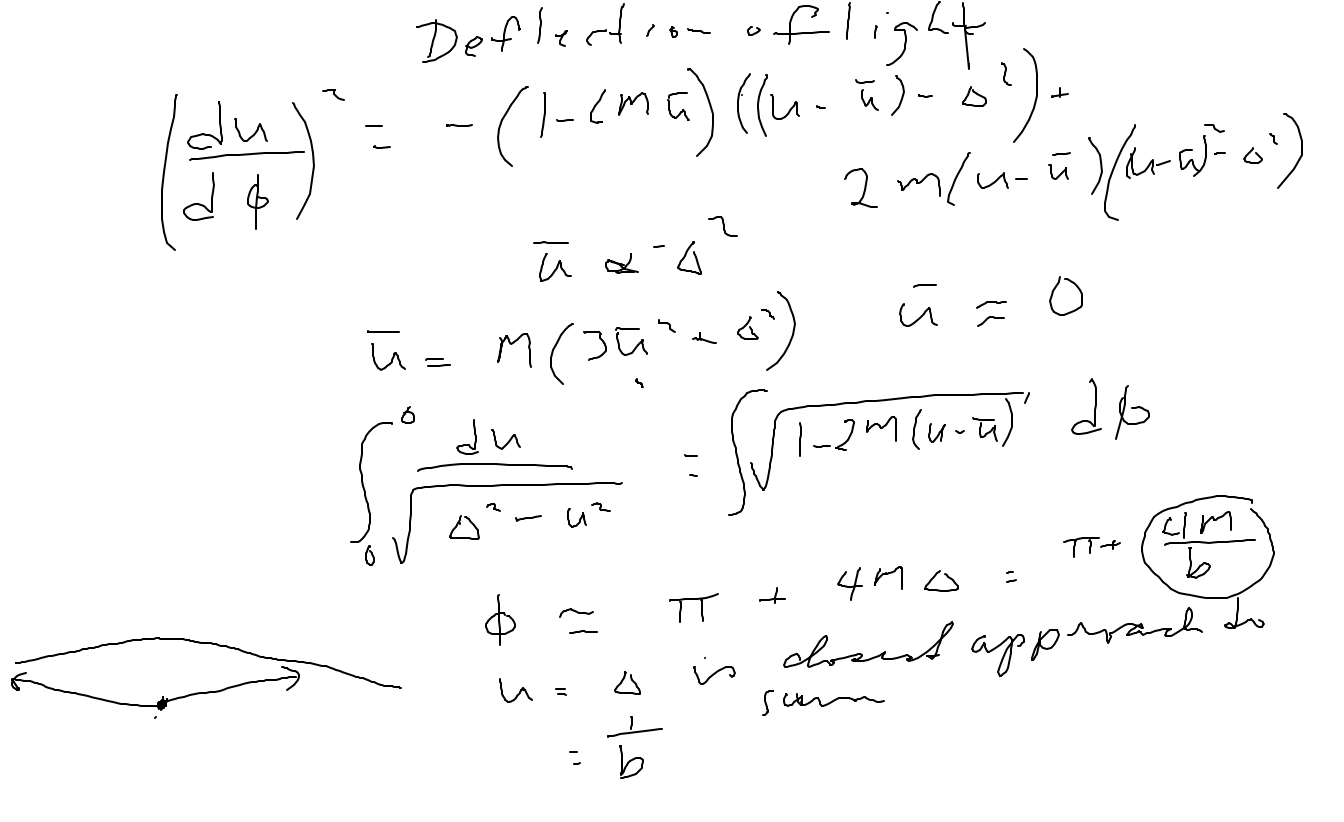 Deflection of light
(du/dφ)² = -(1-6mū)((u-ū)-Δ²)+
2m(u-ū)((u-ū)²-Δ²)
ū ∝ Δ²
ū = M(3ū²+Δ²) ū ≈ 0
∫₀⁰ du/√(Δ²-u²) = ∫√(1-2M(u-ū)) dφ
φ ≃ π + 4MΔ = π + 4M/b
u = Δ is closest approach to
sun
= 1/b